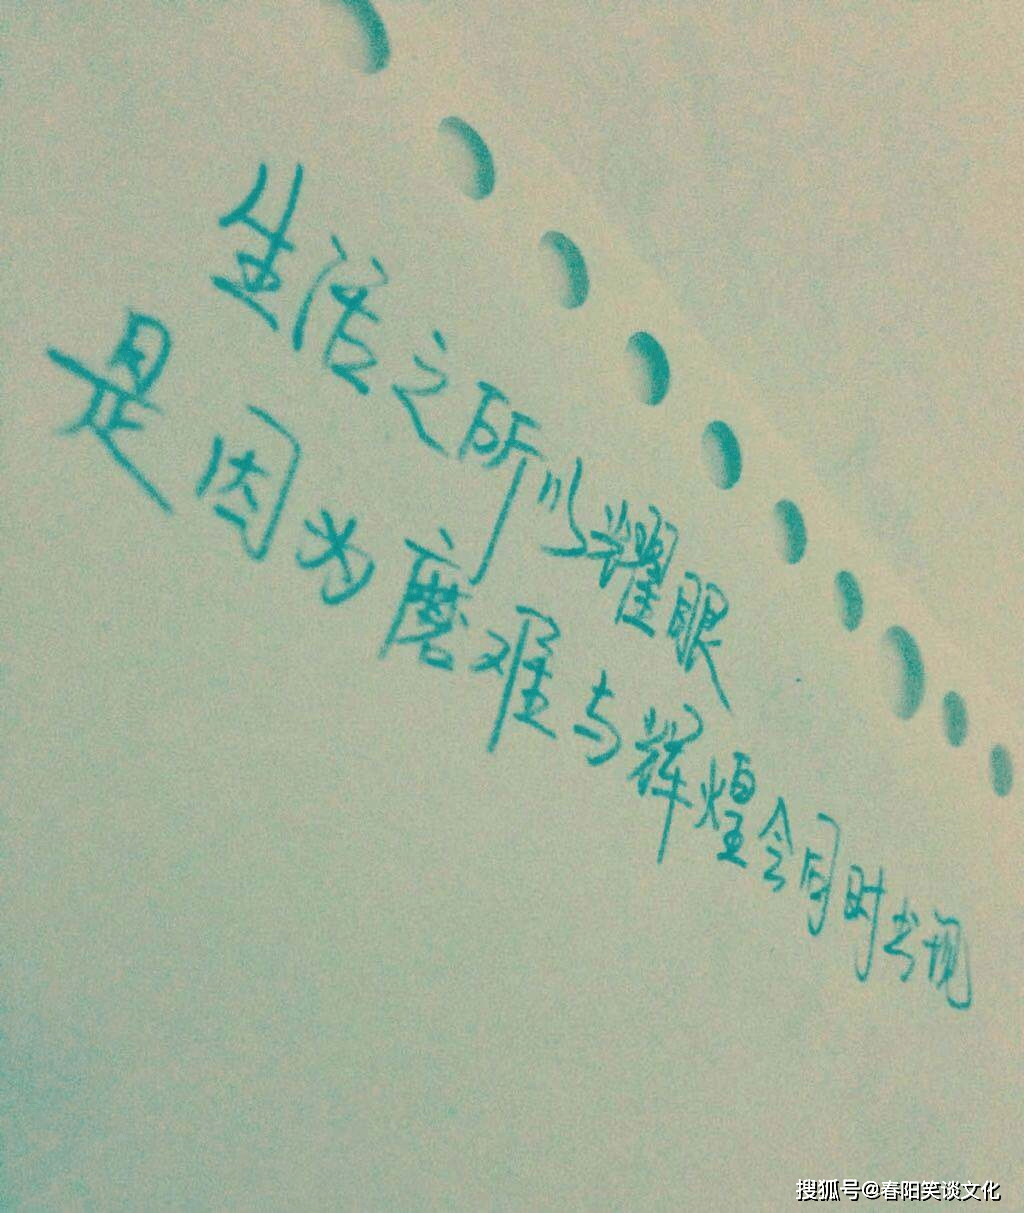 生活之所以耀眼
是因为磨难与辉煌会同时出现
搜狐号@春阳笑谈文化